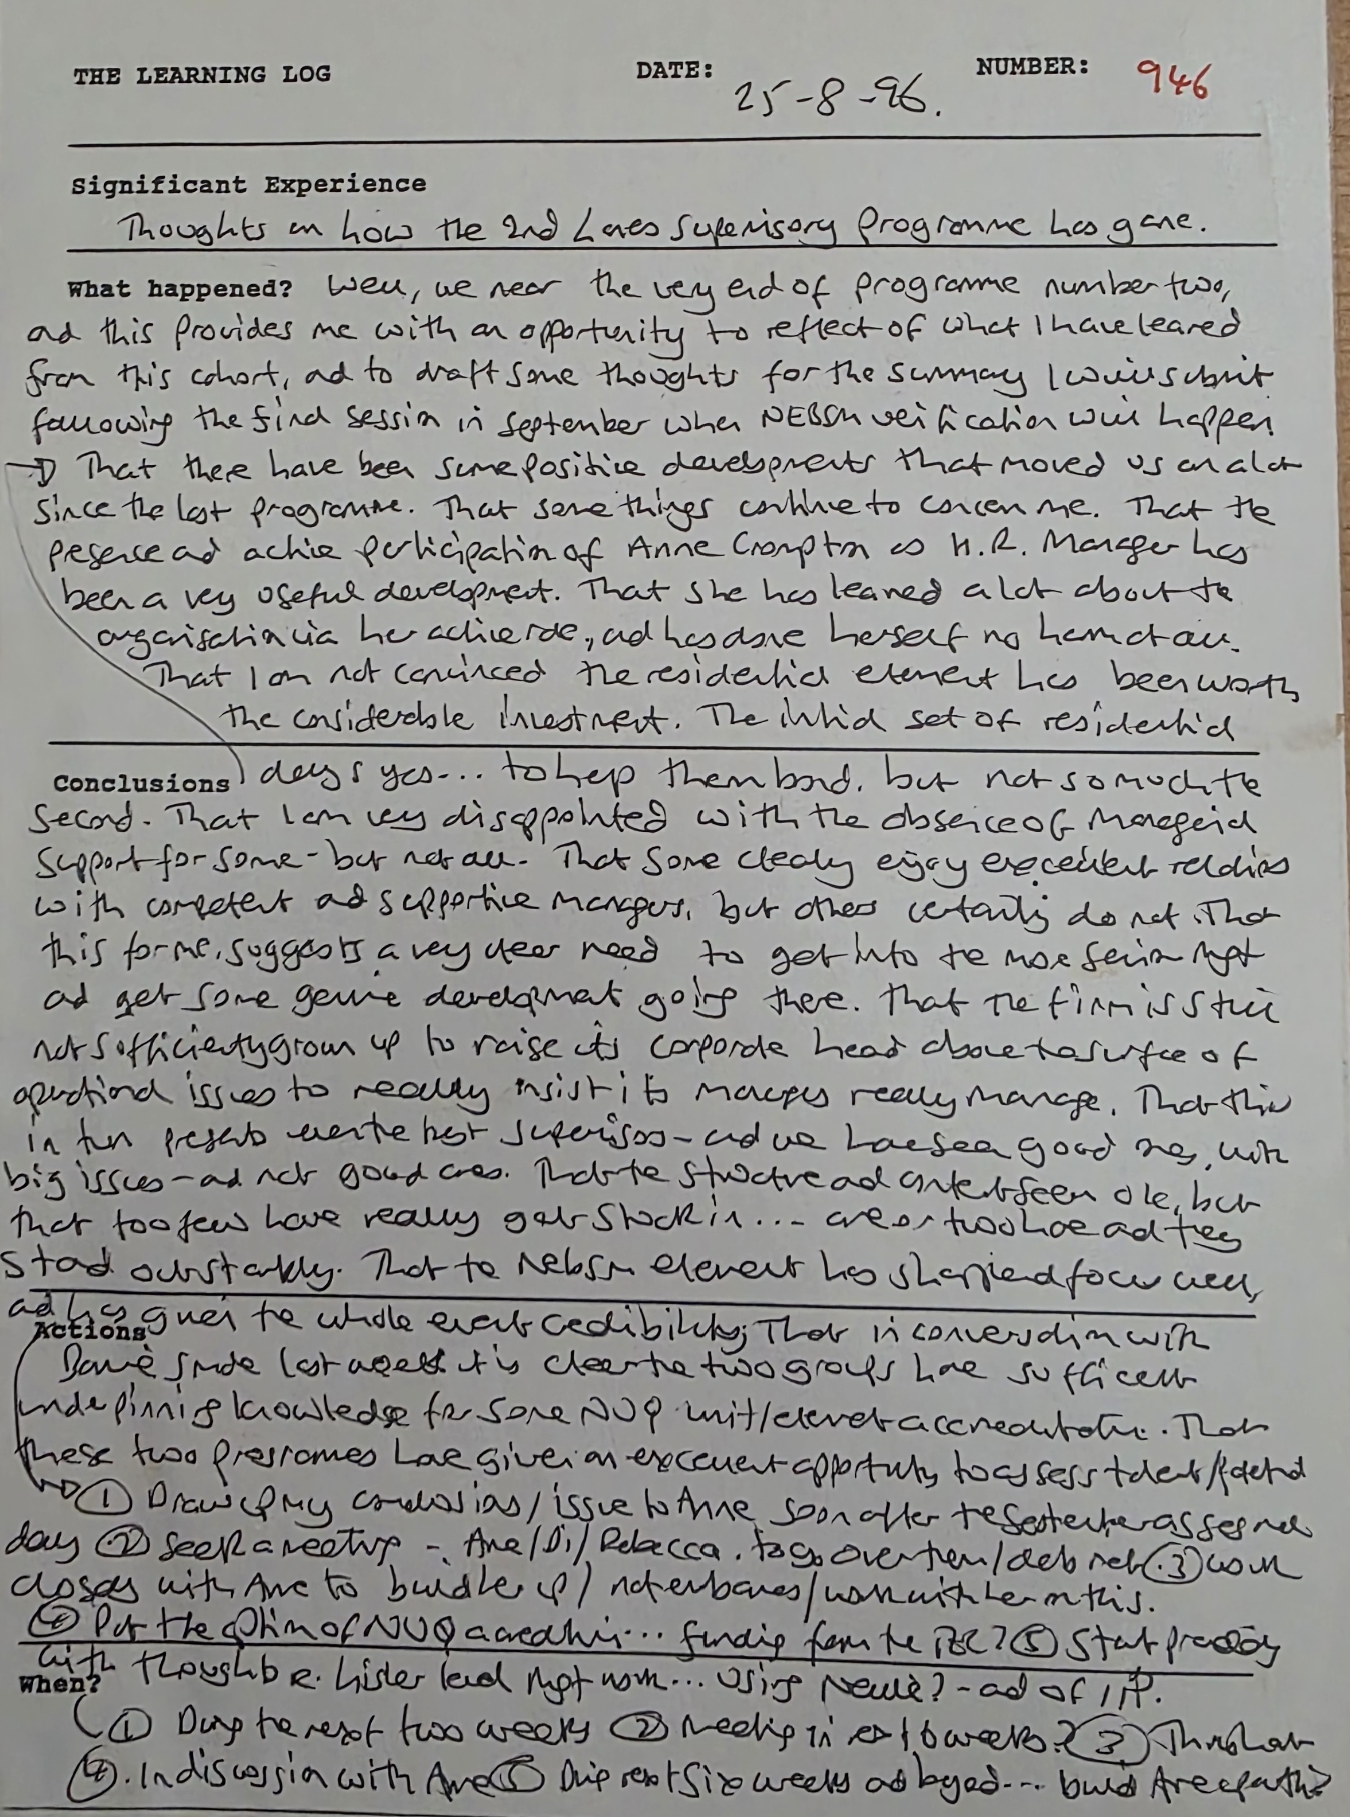 THE LEARNING LOG DATE: 25-8-96. NUMBER: 946
Significant Experience
Thoughts on how the 2nd Laves Supervisory Programme has gone.
What happened? Well, we near the very end of programme number two,
and this provides me with an opportunity to reflect of what I have learned
from this cohort, and to draft some thoughts for the summary I will submit
following the final session in September when NEBSM verification will happen.
→ That there have been some positive developments that moved us on a lot
since the last programme. That some things continue to concern me. That the
presence and active participation of Anne Crompton as H.R. Manager has
been a very useful development. That she has learned a lot about the
organisation via her active role, and has done herself no harm at all.
That I am not convinced the residential element has been worth
the considerable investment. The initial set of residential
Conclusions days yes... to help them bond. but not so much the
second. That I am very disappointed with the absence of Managerial
support for some - but not all. That some clearly enjoy excellent relations
with competent and supportive managers, but others certainly do not. That
this for me, suggests a very clear need to get into the more senior mgt
and get some genuine development going there. That the firm is still
not sufficiently grown up to raise its corporate head above the surface of
operational issues to really insist its managers really manage. That this
in turn presents even the best supervisors - and we have seen good ones, with
big issues - and not good ones. That the structure and content seem OK, but
that too few have really got stuck in... one or two have and they
stand out starkly. That the Nebsm element has sharpened focus well,
and has given the whole event credibility; That in conversation with
Actions
last week it is clear the two groups have sufficient
underpinning knowledge for some NVQ unit/element accreditation. That
these two programmes have given an excellent opportunity to assess talent/potential
→ ① Draw up my conclusions/issue to Anne soon after the September assessment
day ② Seek a meeting - Anne/Di/Rebecca. to go over them/debrief ③ work
closely with Anne to build her up/ not embarrass/work with her on this.
④ Put the option of NVQ accreditation... funding from the ⑤ Start
with thoughts lead mgt work... using - and of IIP.
When?
① During the next two weeks ② Meeting in next 6 weeks? ③ Throughout
④. In discussion with Anne ⑤ During next six weeks and beyond... build Anne